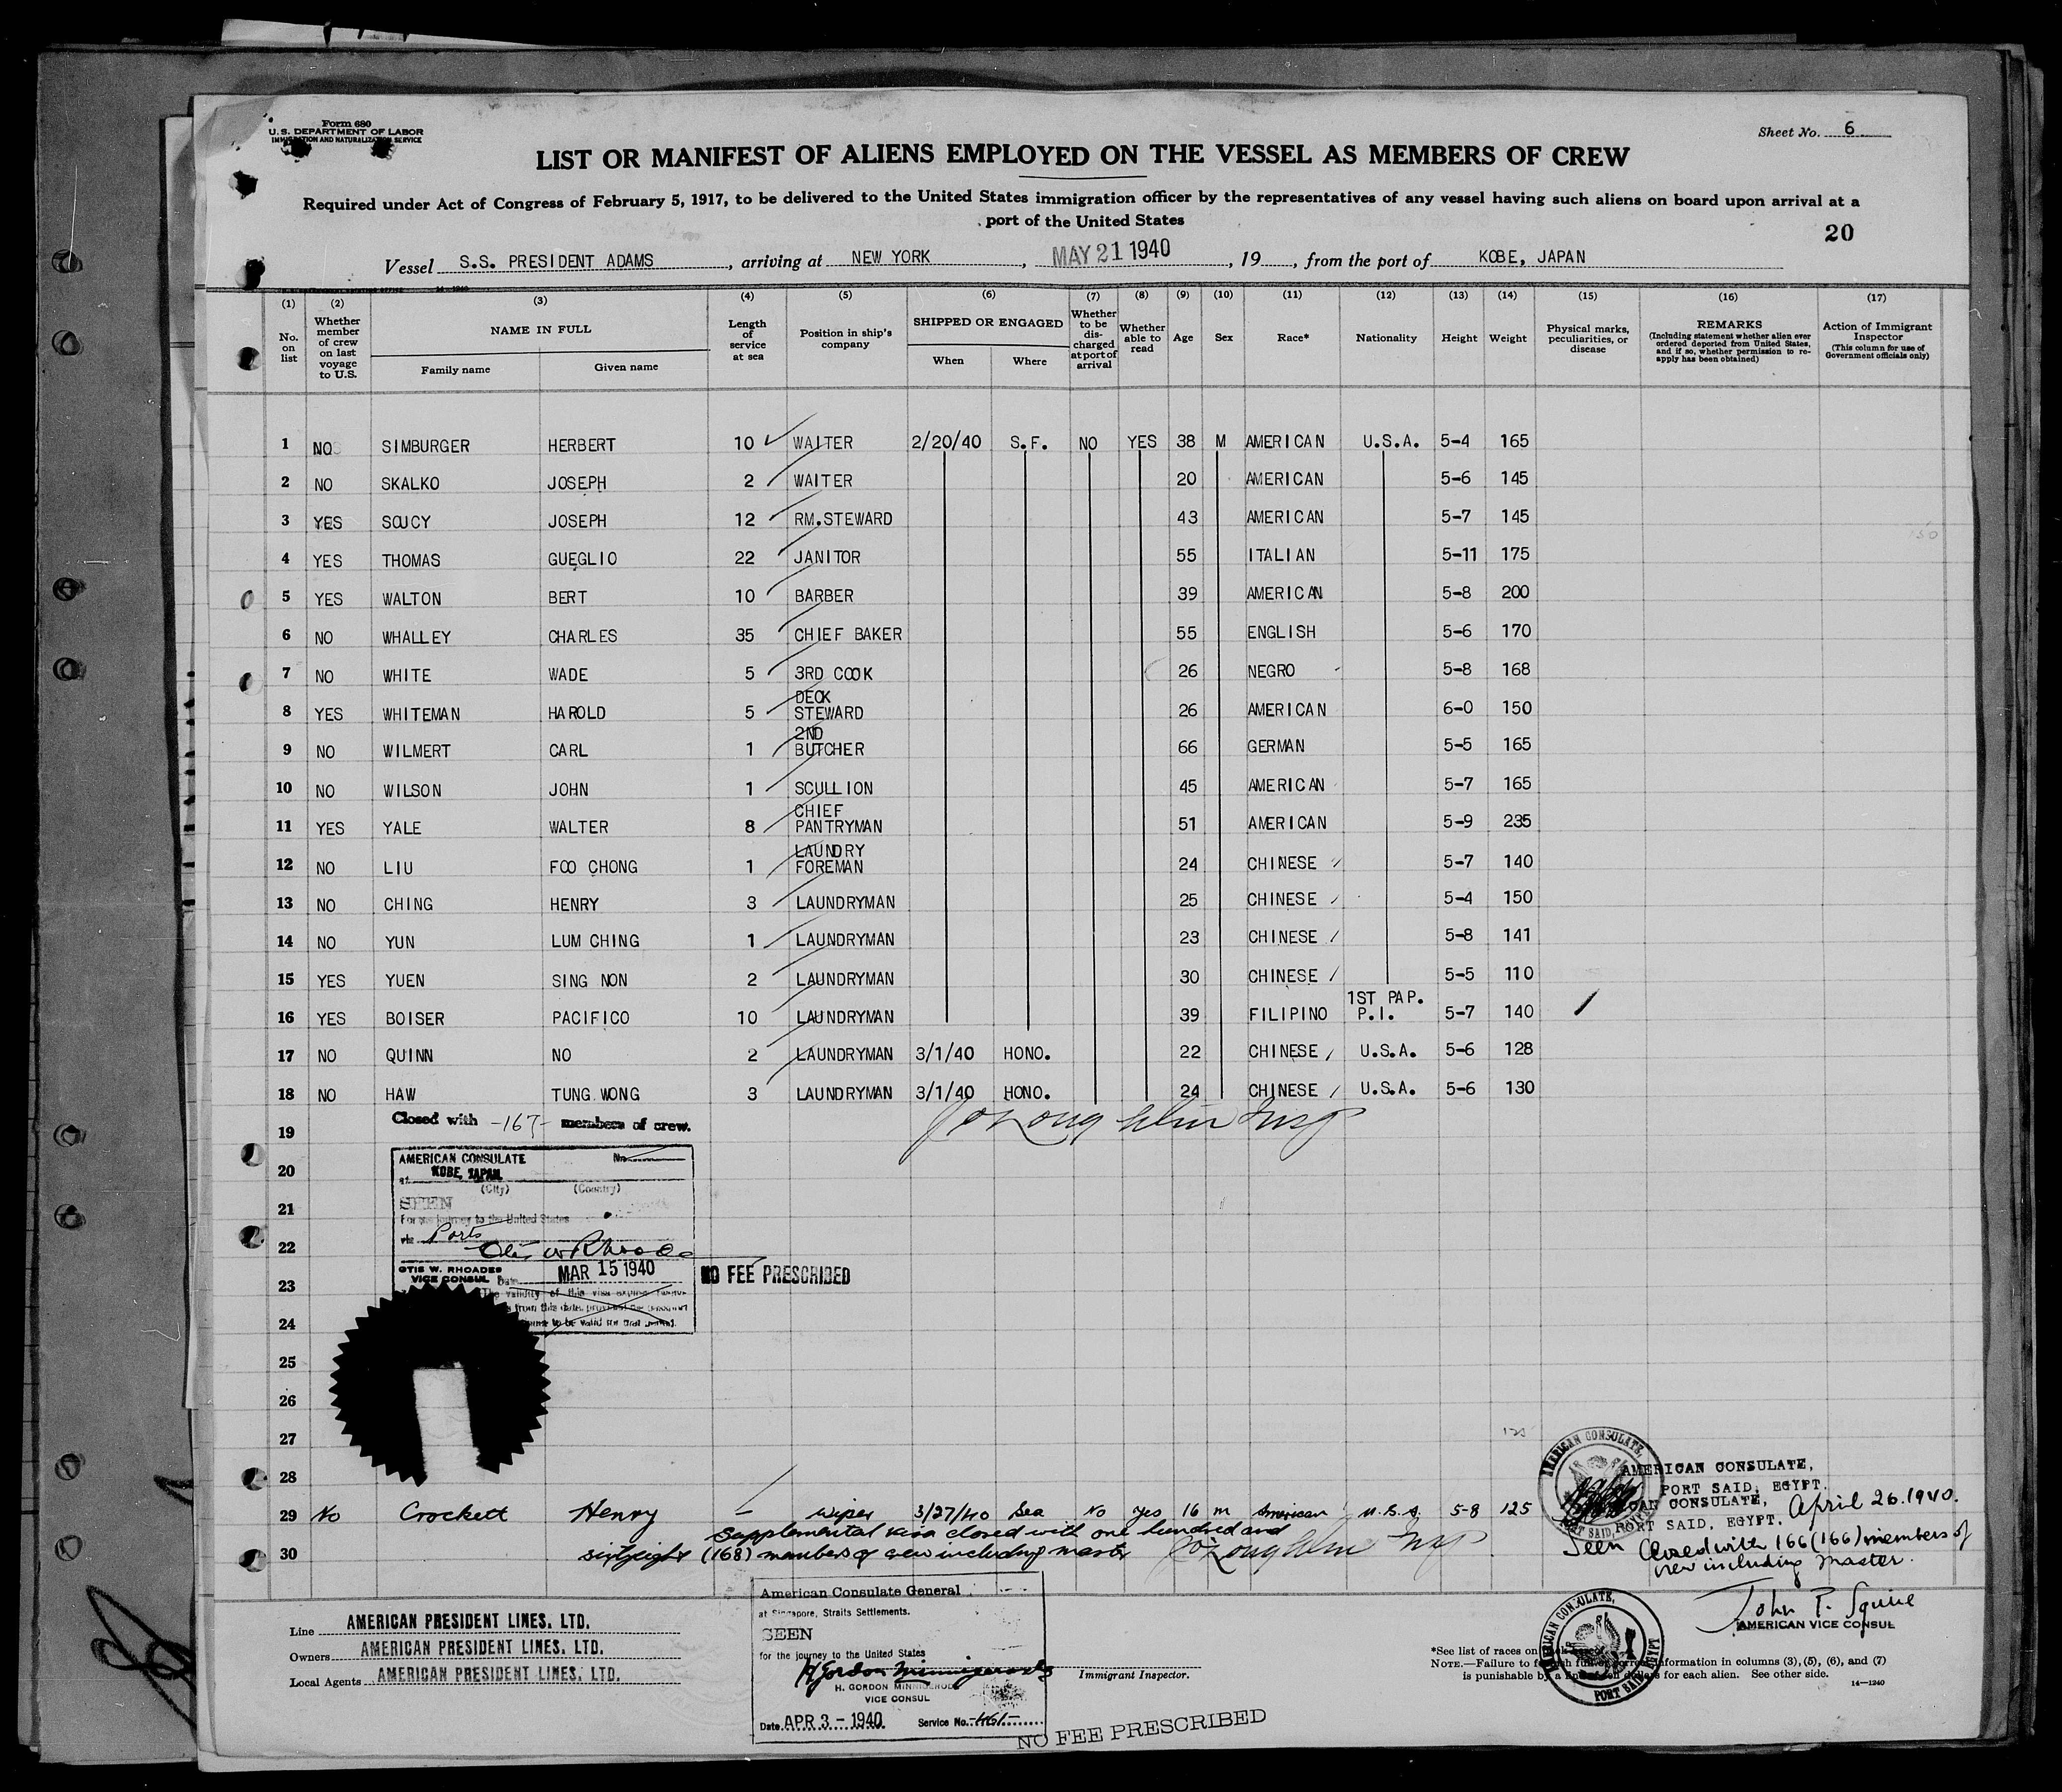 Form 680
U.S. DEPARTMENT OF LABOR
IMMIGRATION AND NATURALIZATION SERVICE
Sheet No. 6
LIST OR MANIFEST OF ALIENS EMPLOYED ON THE VESSEL AS MEMBERS OF CREW
Required under Act of Congress of February 5, 1917, to be delivered to the United States immigration officer by the representatives of any vessel having such aliens on board upon arrival at a
port of the United States
20
Vessel S.S. PRESIDENT ADAMS, arriving at NEW YORK, MAY 21 1940, 19, from the port of KOBE, JAPAN
(1) (2) (3) (4) (5) (6) (7) (8) (9) (10) (11) (12) (13) (14) (15) (16) (17)
No. on list
Whether member of crew on last voyage to U.S.
NAME IN FULL
Family name
Given name
Length of service at sea
Position in ship's company
SHIPPED OR ENGAGED
When
Where
Whether to be discharged at port of arrival
Whether able to read
Age
Sex
Race*
Nationality
Height
Weight
Physical marks, peculiarities, or disease
REMARKS
(Including statement whether alien ever ordered deported from United States, and if so, whether permission to reapply has been obtained)
Action of Immigrant Inspector
(This column for use of Government officials only)
1 NO SIMBURGER HERBERT 10 WAITER 2/20/40 S.F. NO YES 38 M AMERICAN U.S.A. 5-4 165
2 NO SKALKO JOSEPH 2 WAITER 20 AMERICAN 5-6 145
3 YES SOUCY JOSEPH 12 RM.STEWARD 43 AMERICAN 5-7 145
4 YES THOMAS GUEGLIO 22 JANITOR 55 ITALIAN 5-11 175
5 YES WALTON BERT 10 BARBER 39 AMERICAN 5-8 200
6 NO WHALLEY CHARLES 35 CHIEF BAKER 55 ENGLISH 5-6 170
7 NO WHITE WADE 5 3RD COOK 26 NEGRO 5-8 168
8 YES WHITEMAN HAROLD 5 DECK STEWARD 26 AMERICAN 6-0 150
9 NO WILMERT CARL 1 2ND BUTCHER 66 GERMAN 5-5 165
10 NO WILSON JOHN 1 SCULLION 45 AMERICAN 5-7 165
11 YES YALE WALTER 8 CHIEF PANTRYMAN 51 AMERICAN 5-9 235
12 NO LIU FOO CHONG 1 LAUNDRY FOREMAN 24 CHINESE 5-7 140
13 NO CHING HENRY 3 LAUNDRYMAN 25 CHINESE 5-4 150
14 NO YUN LUM CHING 1 LAUNDRYMAN 23 CHINESE 5-8 141
15 YES YUEN SING NON 2 LAUNDRYMAN 30 CHINESE 5-5 110
16 YES BOISER PACIFICO 10 LAUNDRYMAN 39 FILIPINO 1ST PAP. P.I. 5-7 140
17 NO QUINN NO 2 LAUNDRYMAN 3/1/40 HONO. 22 CHINESE U.S.A. 5-6 128
18 NO HAW TUNG WONG 3 LAUNDRYMAN 3/1/40 HONO. 24 CHINESE U.S.A. 5-6 130
Closed with -167- members of crew.
19
AMERICAN CONSULATE No.
20
at KOBE, JAPAN
(City) (Country)
21
SEEN
For the journey to the United States
22
via Ports
Otis W Rhoades
OTIS W. RHOADES
VICE CONSUL Date MAR 15 1940
NO FEE PRESCRIBED
23
The validity of this visa expires twelve
from this date, provided the passport
24
to be valid for that period.
25
26
27
28
29 No Crockett Henry – Wiper 3/27/40 Sea No Yes 16 m American U.S.A. 5-8 125
Supplemental visa closed with one hundred and
30
sixtyeight (168) members of crew including master
AMERICAN CONSULATE,
PORT SAID, EGYPT.
AMERICAN CONSULATE,
PORT SAID, EGYPT. April 26. 1940.
Seen Closed with 166 (166) members of
crew including Master.
John P. Squire
AMERICAN VICE CONSUL
AMERICAN CONSULATE, PORT SAID, EGYPT
AMERICAN CONSULATE, PORT SAID EGYPT
Line AMERICAN PRESIDENT LINES, LTD.
Owners AMERICAN PRESIDENT LINES, LTD.
Local Agents AMERICAN PRESIDENT LINES, LTD.
American Consulate General
at Singapore, Straits Settlements.
SEEN
for the journey to the United States
H Gordon Minnigerode
H. GORDON MINNIGERODE
VICE CONSUL
Date APR 3 - 1940 Service No. -461-
NO FEE PRESCRIBED
Immigrant Inspector.
*See list of races on
NOTE.—Failure to furnish full or correct information in columns (3), (5), (6), and (7)
is punishable by a fine of ten dollars for each alien. See other side.
14—1240